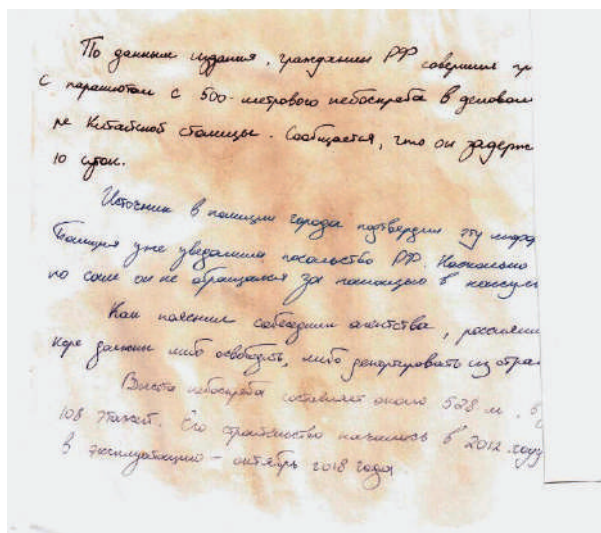 По данным издания, гражданин РФ совершил пр
с парашютом с 500-метрового небоскреба в деловом
ре Китайской столицы. Сообщается, что он задерж
10 суток.
Источник в полиции города подтвердил эту инфор
Полиция уже уведомила посольство РФ. Насколько
но сам он не обращался за помощью в консуль
Как пояснил собеседник агентства, россияни
коре должны либо освободить, либо депортировать из стра
Высота небоскреба составляет около 528 м, в
108 этажей. Его строительство началось в 2012 году
в эксплуатацию - октябрь 2018 года